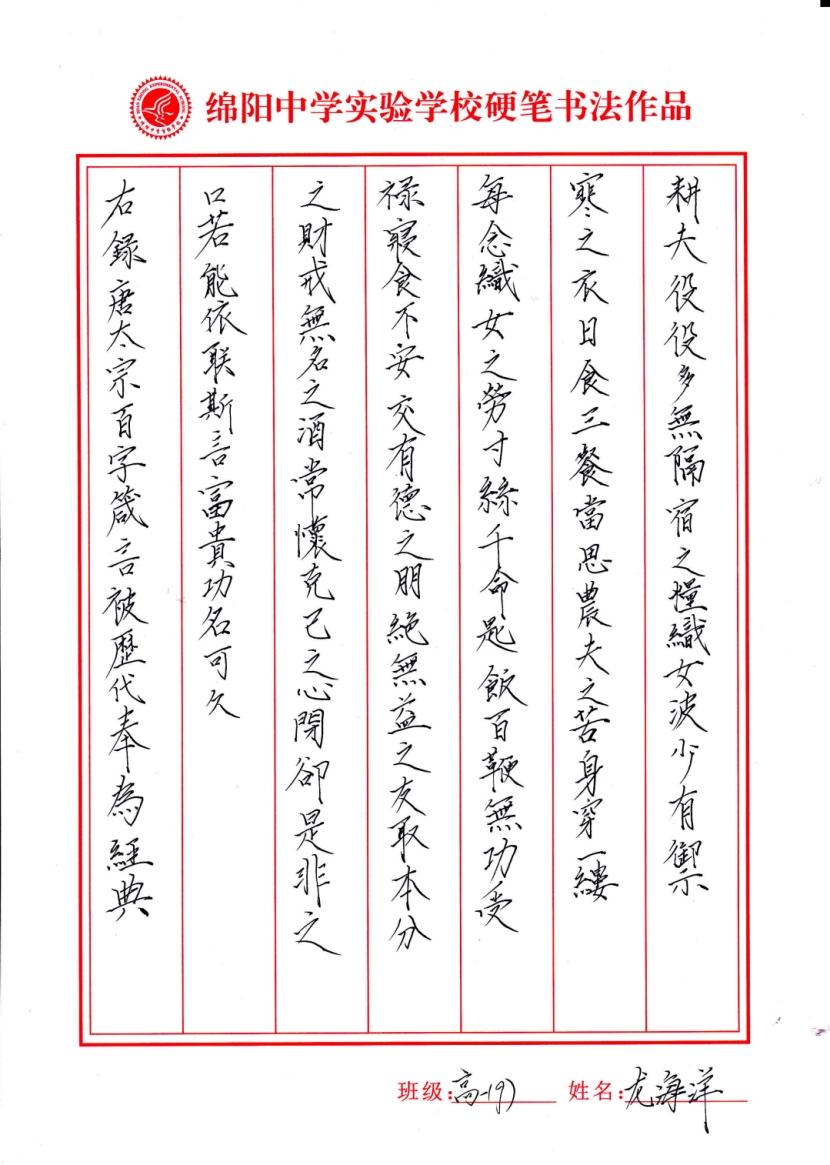 绵阳中学实验学校硬笔书法作品
耕夫役役多無隔宿之糧織女波少有御
寒之衣日食三餐當思農夫之苦身穿一縷
每念織女之勞寸絲千命匙飯百鞭無功受
祿寢食不安交有德之朋絕無益之友取本分
之財戒無名之酒常懷克己之心閉卻是非之
口若能依联斯言富貴功名可久
右錄唐太宗百字箴言被歷代奉為經典
班级:高一(9) 姓名:龙海洋